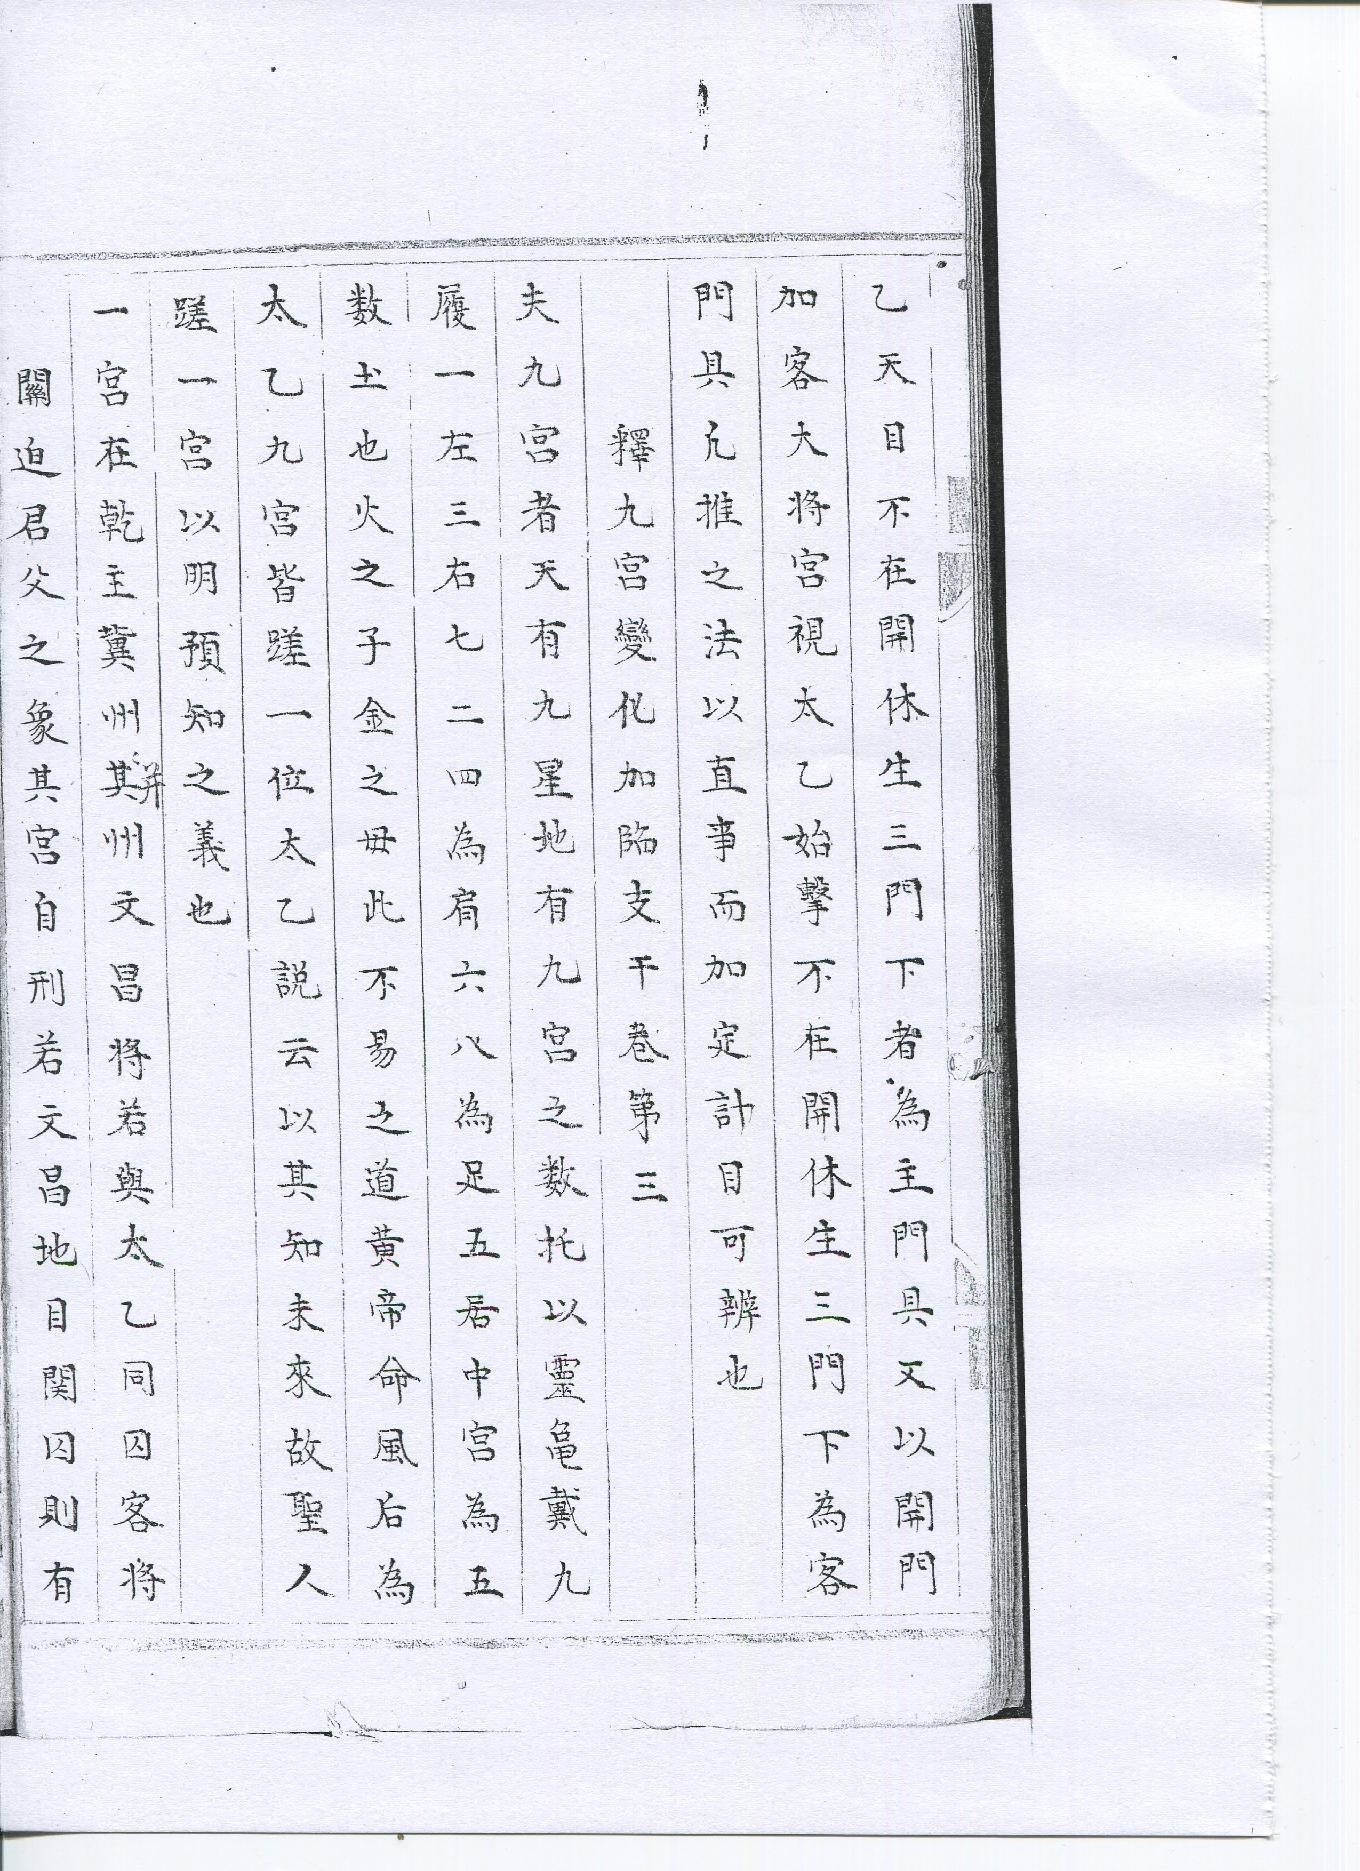 乙天目不在開休生三門下者為主門具又以開門
加客大将宮視太乙始擊不在開休生三門下為客
門具凡推之法以直事而加定計目可辨也
釋九宮變化加臨支干卷第三
夫九宮者天有九星地有九宮之数托以靈亀戴九
履一左三右七二四為肩六八為足五居中宮為五
数土也火之子金之毋此不易之道黄帝命風后為
太乙九宮皆蹉一位太乙説云以其知未來故聖人
蹉一宮以明預知之義也
一宮在乾主冀州其州文昌将若與太乙同囚客将
并
關迫君父之象其宮自刑若文昌地目関囚則有